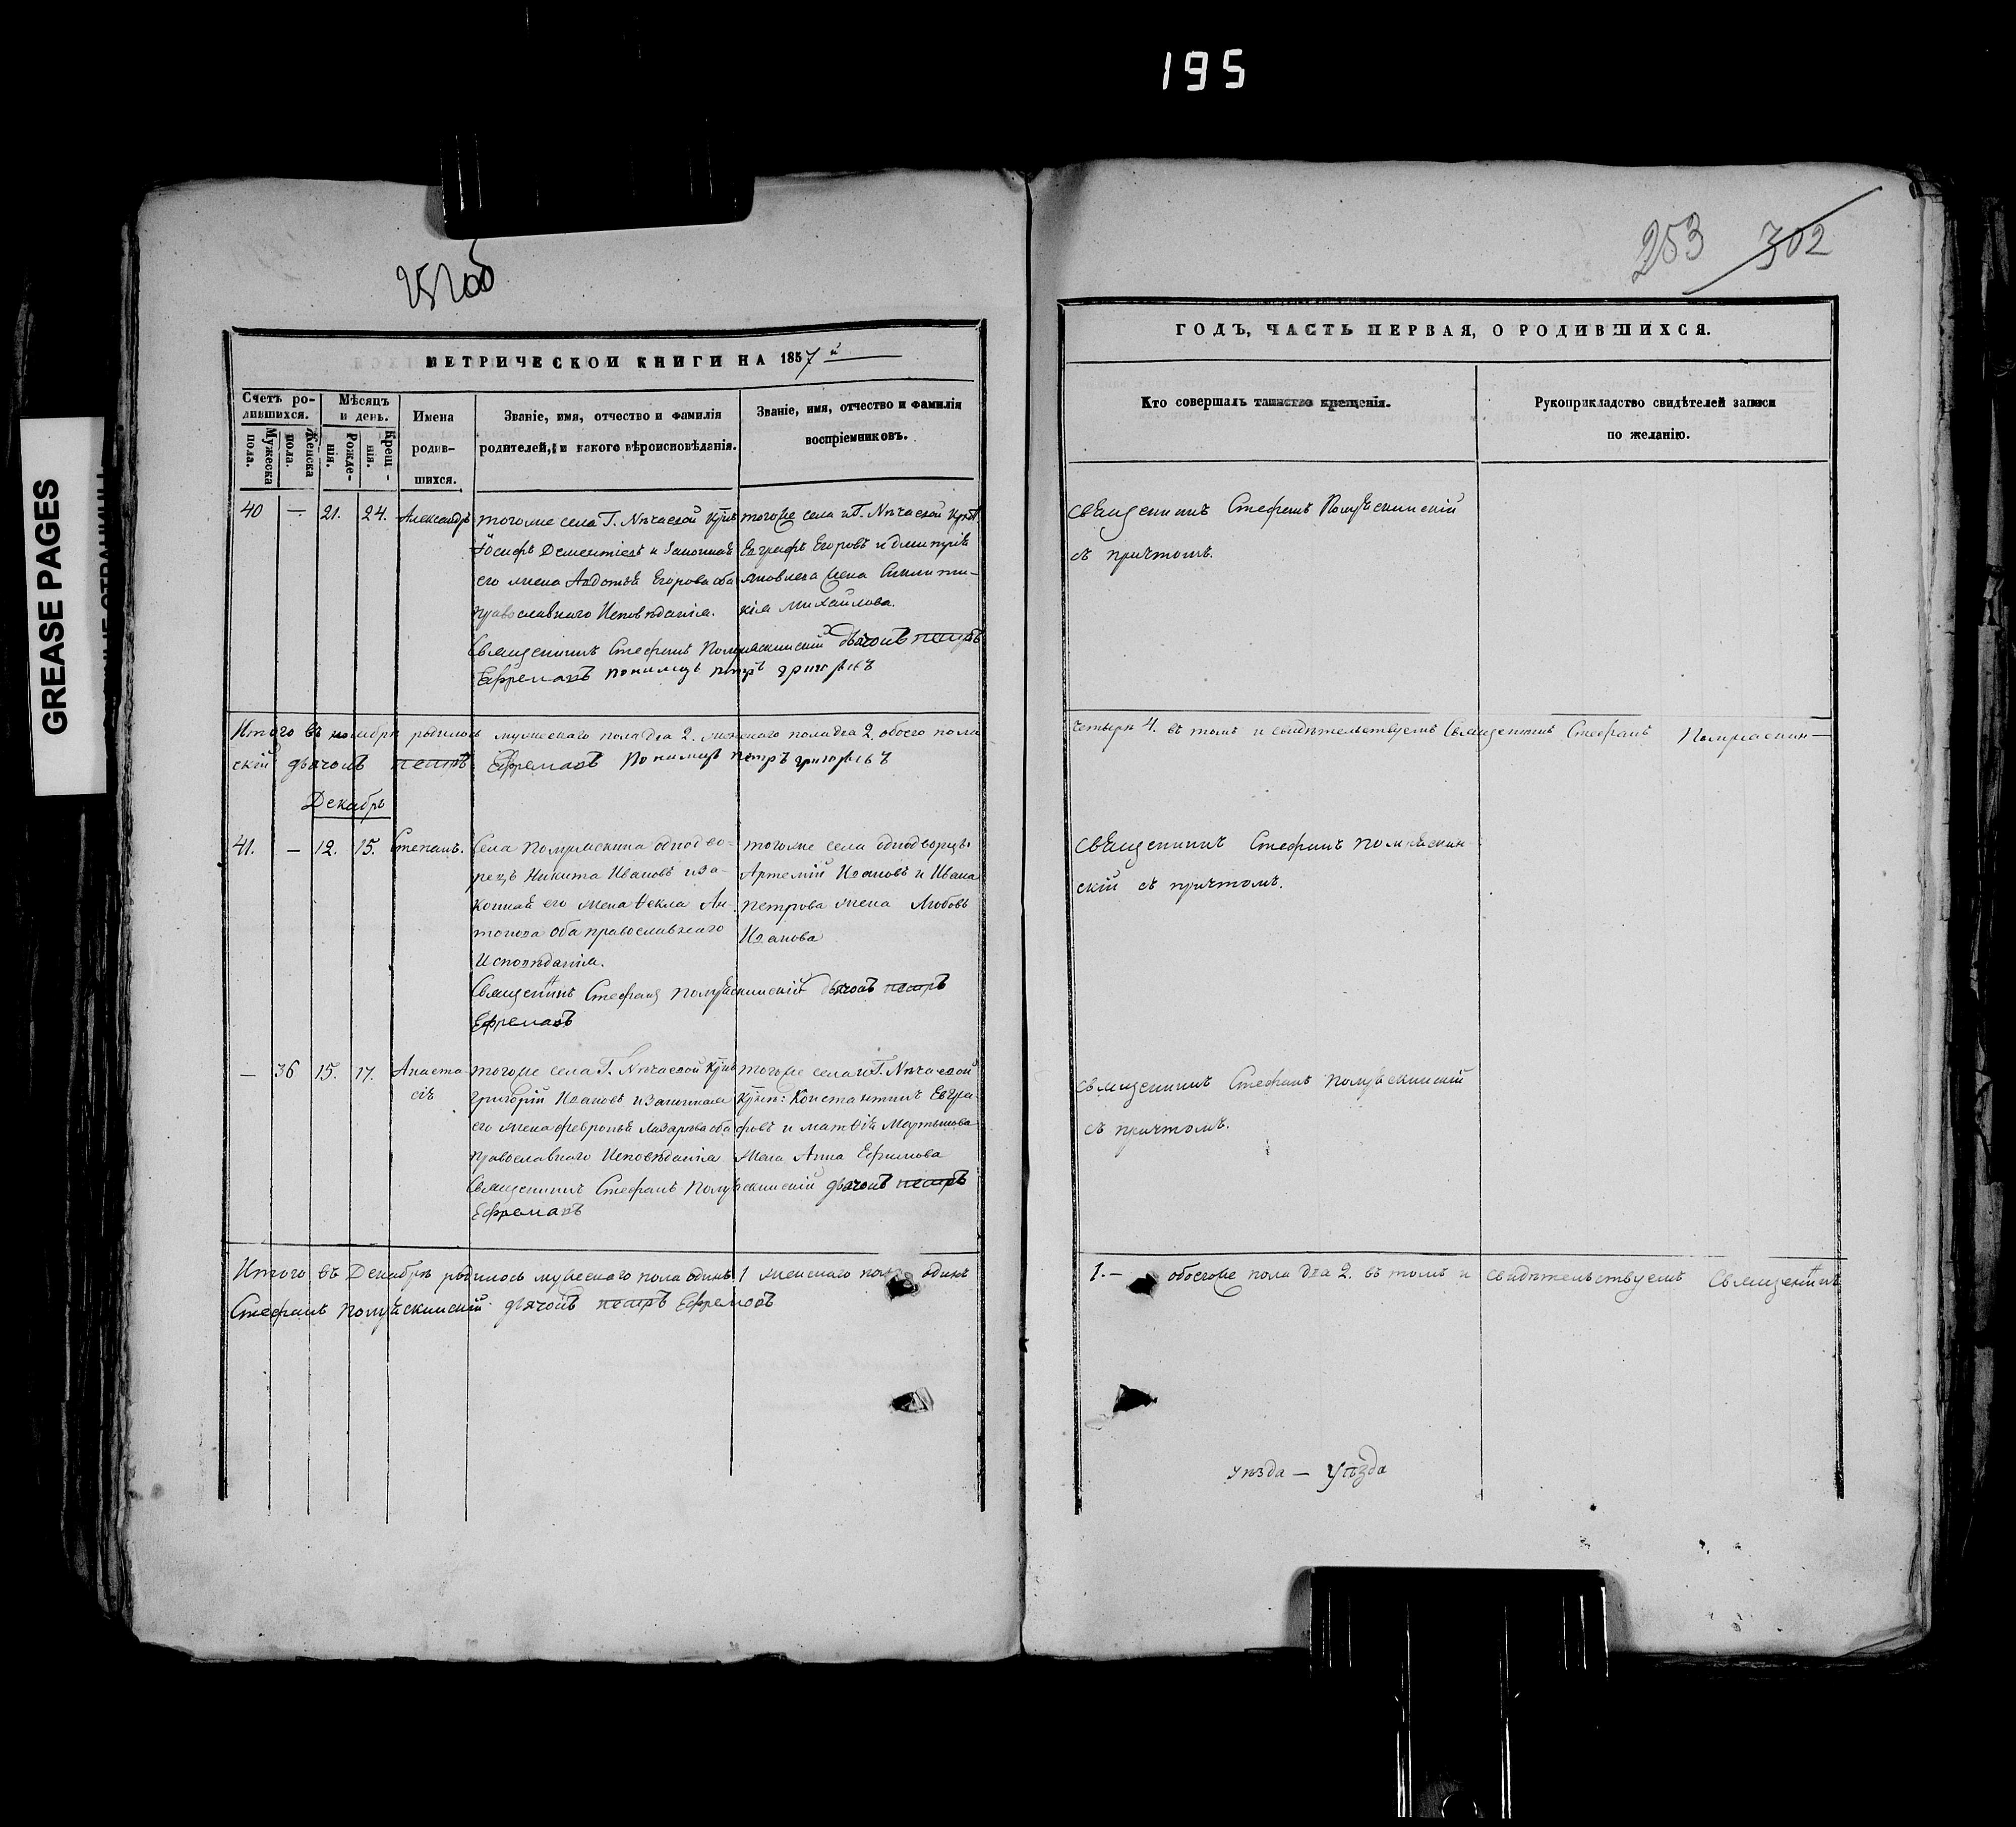 195
GREASE PAGES
253 302
МЕТРИЧЕСКОЙ КНИГИ НА 1857й
Счетъ ро-
дившихся.
Мужеска пола.
Женска пола.
Мѣсяцъ
и день.
Рожде-
нія.
Крещ-
нія.
Имена
родив-
шихся.
Званіе, имя, отчество и фамилія
родителей, и какого вѣроисповѣданія.
Званіе, имя, отчество и фамилія
воспріемниковъ.
40 — 21. 24. Александръ
тогоже села Г. Нѣчаевой
Іосифъ Дементіевъ и законная
его жена Авдотья Егорова оба
православнаго Исповѣданія.
тогоже села и Г. Нѣчаевой
Евграфъ Егоровъ и Дмитрія
Яковлева жена
Михайлова.
Священникъ Стефанъ дьячокъ петръ
Ефремовъ пономарь петръ григорьевъ
Итого въ ноябрѣ родилось мужескаго пола два 2. женскаго пола два 2. обоего пола
скій дьячокъ петръ Ефремовъ Пономарь петръ григорьевъ
Декабрь
41. — 12. 15. Степанъ.
Села однодво-
рецъ Никита Ивановъ и за-
конная его жена Ѳекла Ан-
тонова оба православнаго
Исповѣданія.
тогоже села однодворцы
Артемій Ивановъ и Ивана
петрова жена Любовь
Иванова
Священникъ Стефанъ дьячокъ петръ
Ефремовъ
— 36 15. 17. Анаста-
сія
тогоже села Г. Нѣчаевой
григорій Ивановъ и законная
его жена февронья Лазарева оба
православнаго Исповѣданія
тогоже села и Г. Нѣчаевой
Константинъ Евгра-
фовъ и матвѣя Мартынова
жена Анна Ефимова
Священникъ Стефанъ дьячокъ петръ
Ефремовъ
Итого въ Декабрѣ родилось мужескаго пола одинъ 1 женскаго пола одинъ
Стефанъ дьячокъ петръ Ефремовъ
ГОДЪ, ЧАСТЬ ПЕРВАЯ, О РОДИВШИХСЯ.
Кто совершалъ таинство крещенія.
Рукоприкладство свидѣтелей записи
по желанію.
священникъ Стефанъ
съ причтомъ.
четыре 4. въ томъ и свидѣтельствуемъ Священникъ Стефанъ
священникъ Стефанъ
скій съ причтомъ.
священникъ Стефанъ
съ причтомъ.
1.— обоегоже пола два 2. въ томъ и свидѣтельствуемъ Священникъ
уѣзда — Уѣзда